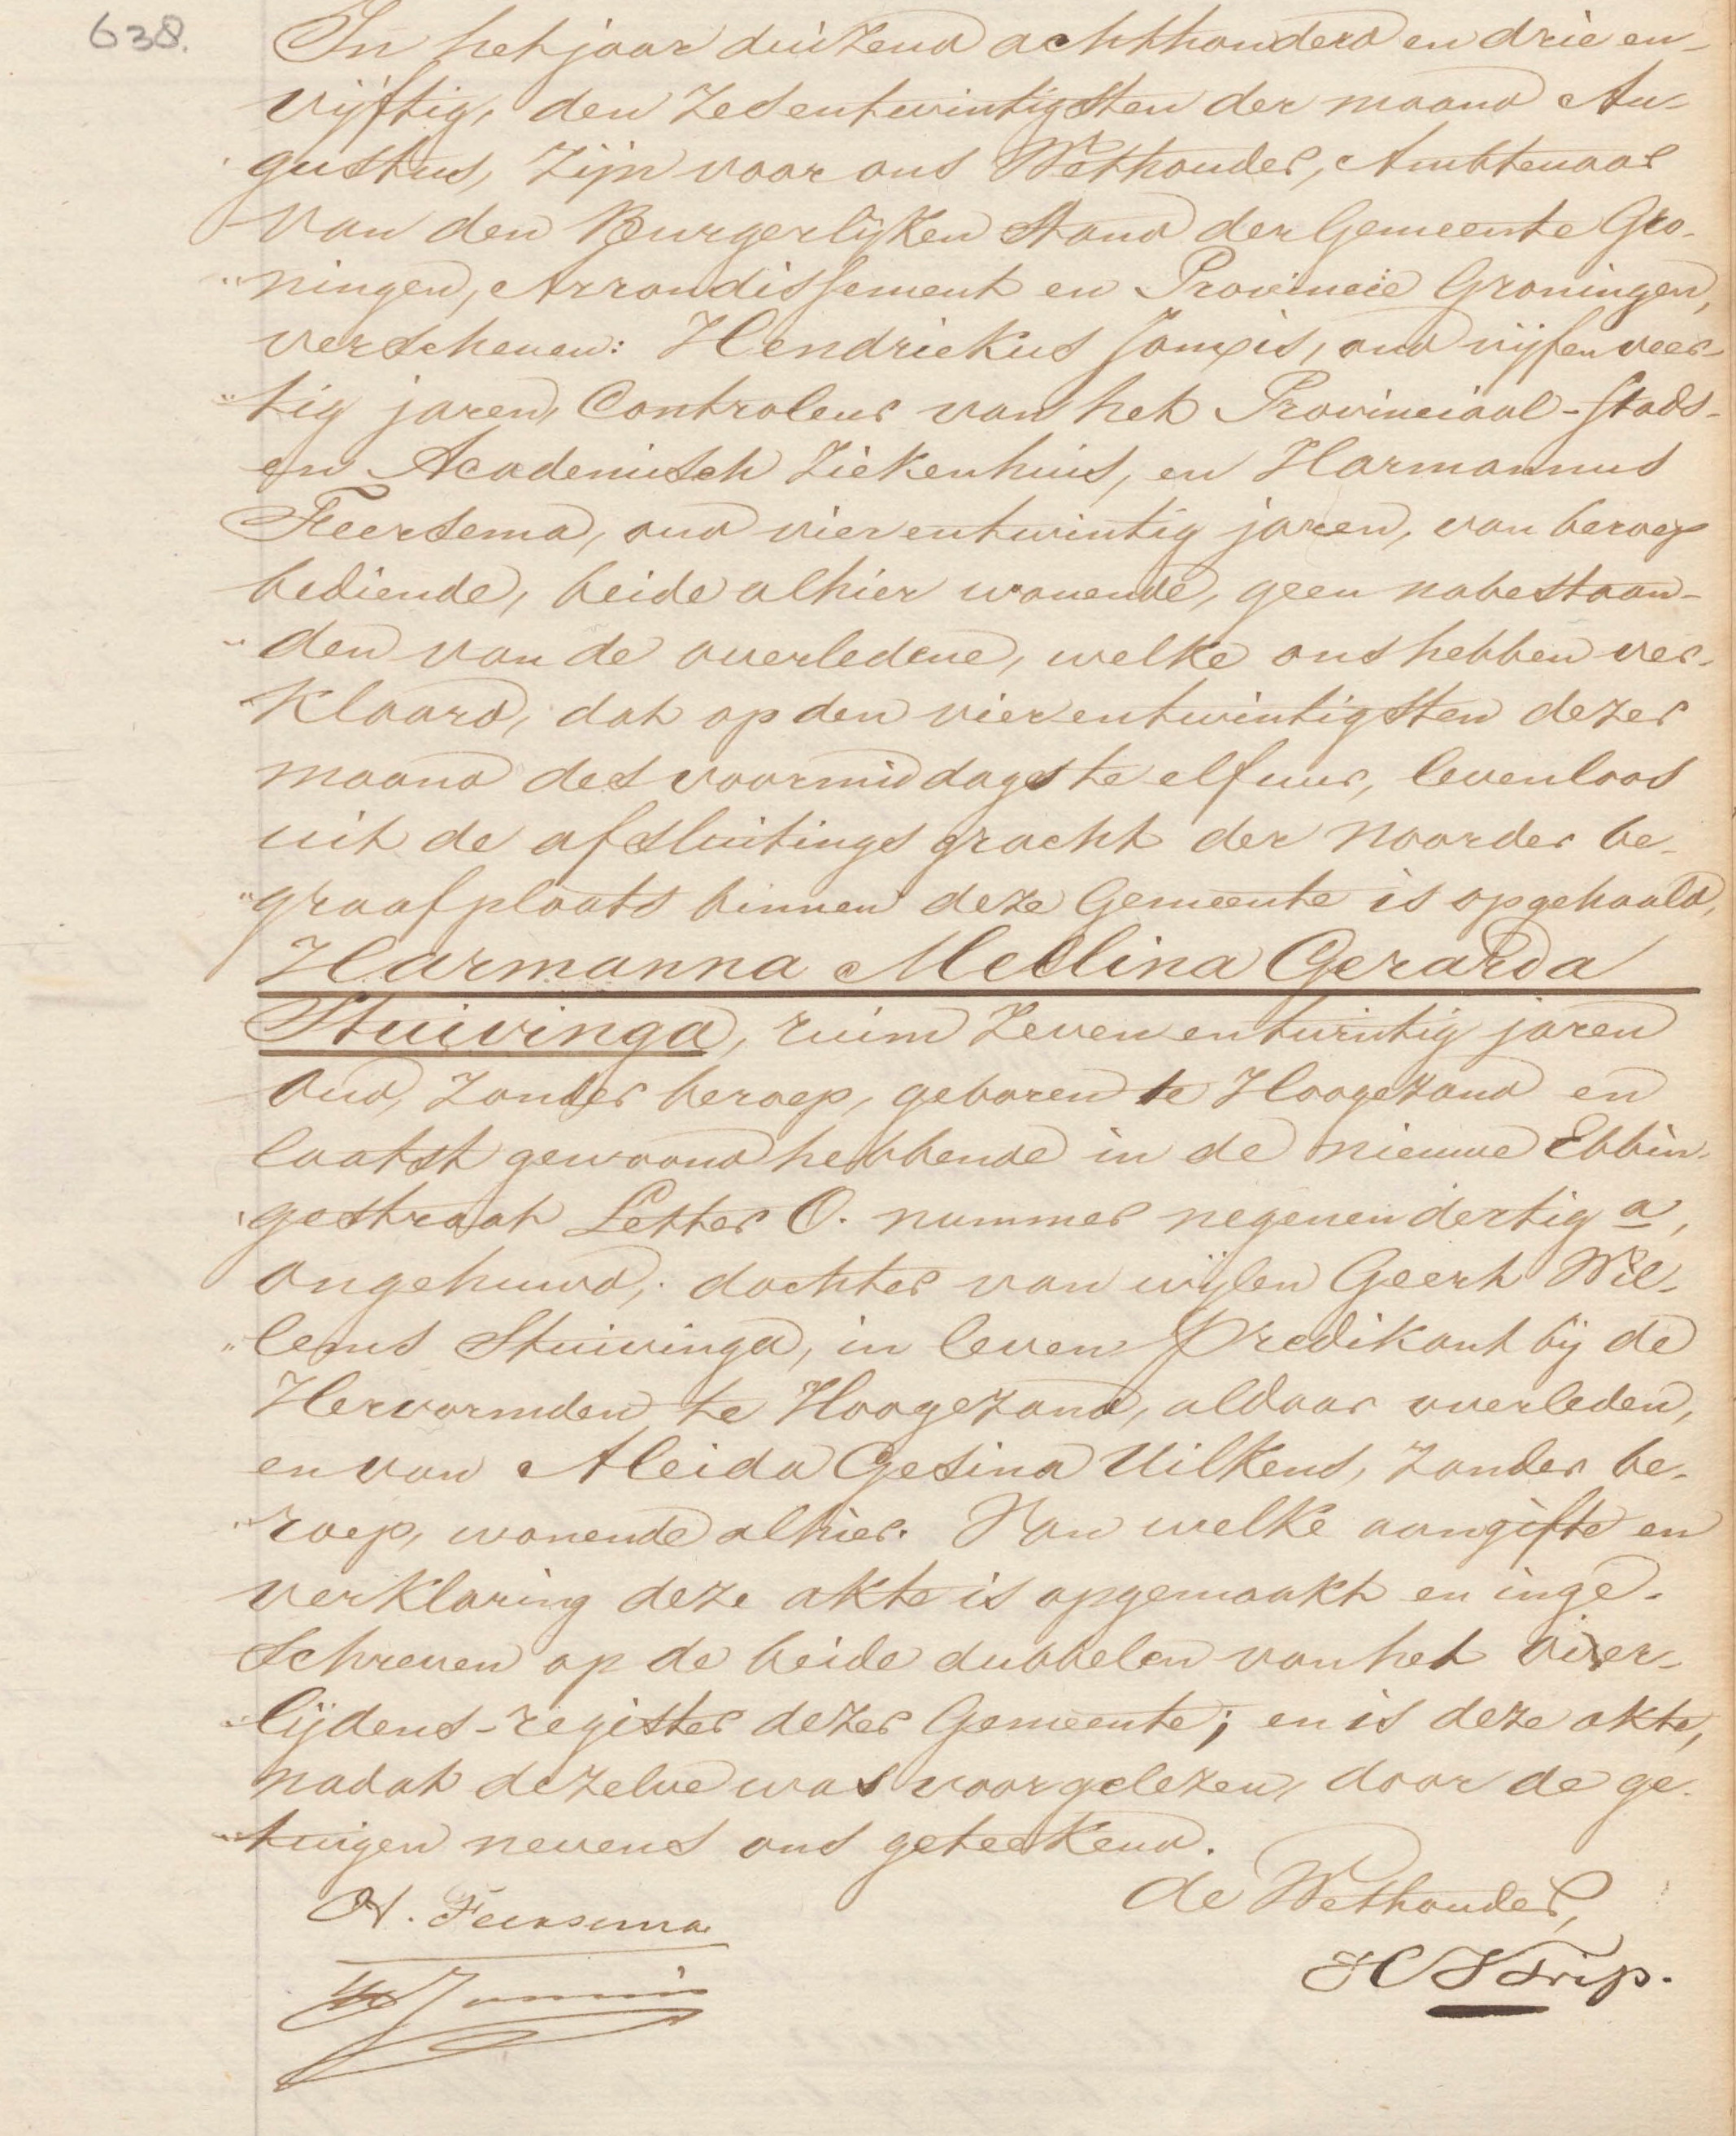 638.
In het jaar duizend achthonderd en drie en-
vijftig, den zesentwintigsten der maand Au-
gustus, zijn voor ons Wethouder, Ambtenaar
van den Burgerlijken Stand der Gemeente Gro-
ningen, Arrondissement en Provincie Groningen,
verschenen: Hendriekus oud vijfenveer-
tig jaren, Controleur van het Provinciaal-Stads-
en Academisch Ziekenhuis, en Harmannus
Feersema, oud vierentwintig jaren, van beroep
bediende, beide alhier wonende, geen nabestaan-
den van de overledene, welke ons hebben ver-
klaard, dat op den vierentwintigsten dezer
maand des voormiddags te elf uur, levenloos
uit de afsluitings gracht der Noorder be-
graafplaats binnen deze Gemeente is opgehaald,
Harmanna Mellina Gerarda
Stuivinga, ruim zevenentwintig jaren
oud, zonder beroep, geboren te Hoogezand en
laatst gewoond hebbende in de nieuwe Ebbin-
gestraat Letter O. nummer negenendertig a,
ongehuwd, dochter van wijlen Geert Wil-
lems Stuivinga, in leven Predikant bij de
Hervormden te Hoogezand, aldaar overleden,
en van Aleida Gesina Uilkens, zonder be-
roep, wonende alhier. Van welke aangifte en
verklaring deze akte is opgemaakt en inge-
schreven op de beide dubbelen van het over-
lijdens-register dezer Gemeente; en is deze akte,
nadat dezelve was voorgelezen, door de ge-
tuigen nevens ons geteekend.
de Wethouder,
H. Feersema
Trip.